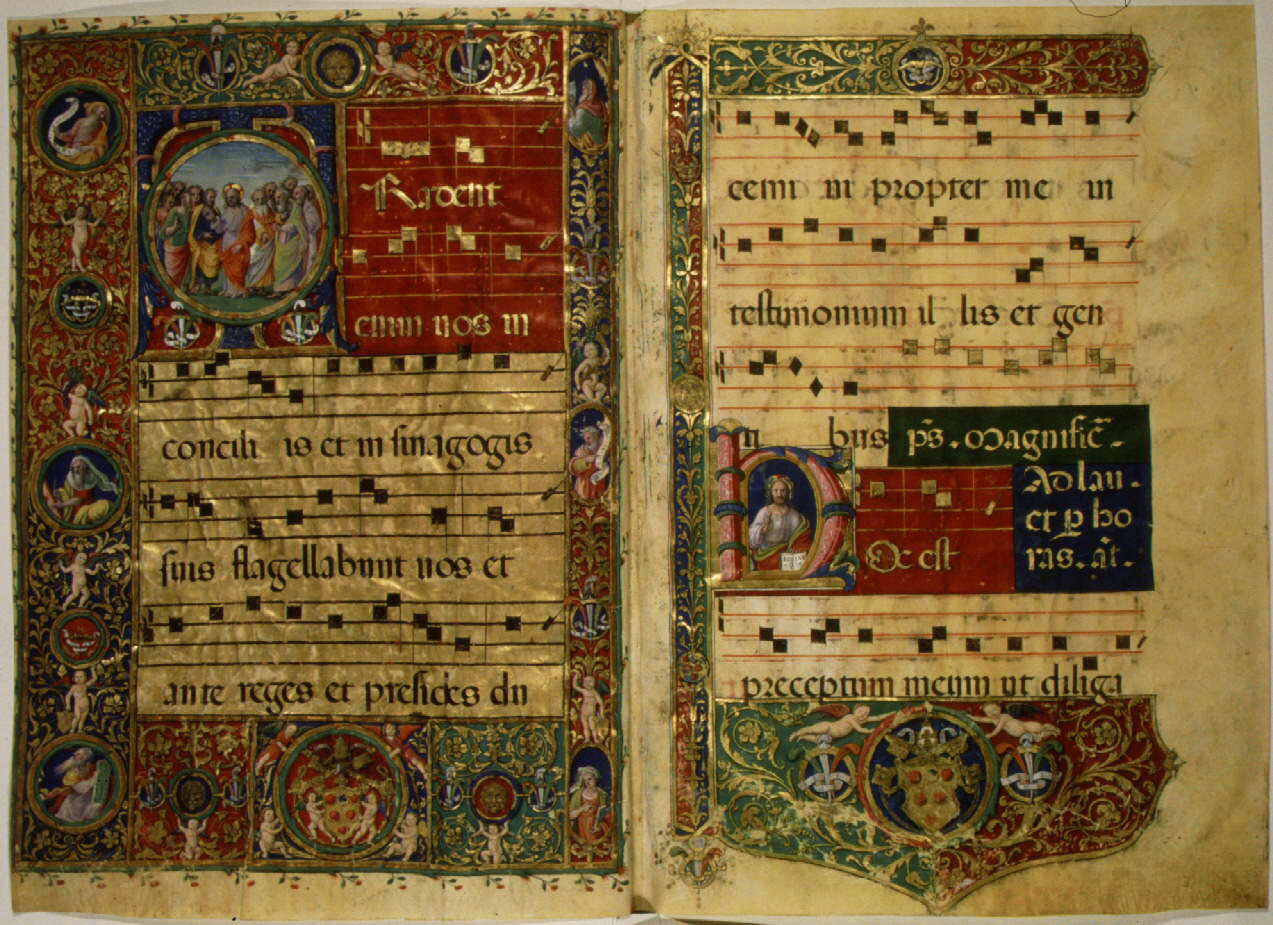 TRadent
enim vos in
concili is et in sinagogis
suis flagellabunt vos et
ante reges et presides du
cemi ni propter me in
testimonium il lis et gen
ti bus p̄s. Magnific̄.
HOc est
Ad lau.
et ꝑ ho
ras. añt.
preceptum meum ut diliga